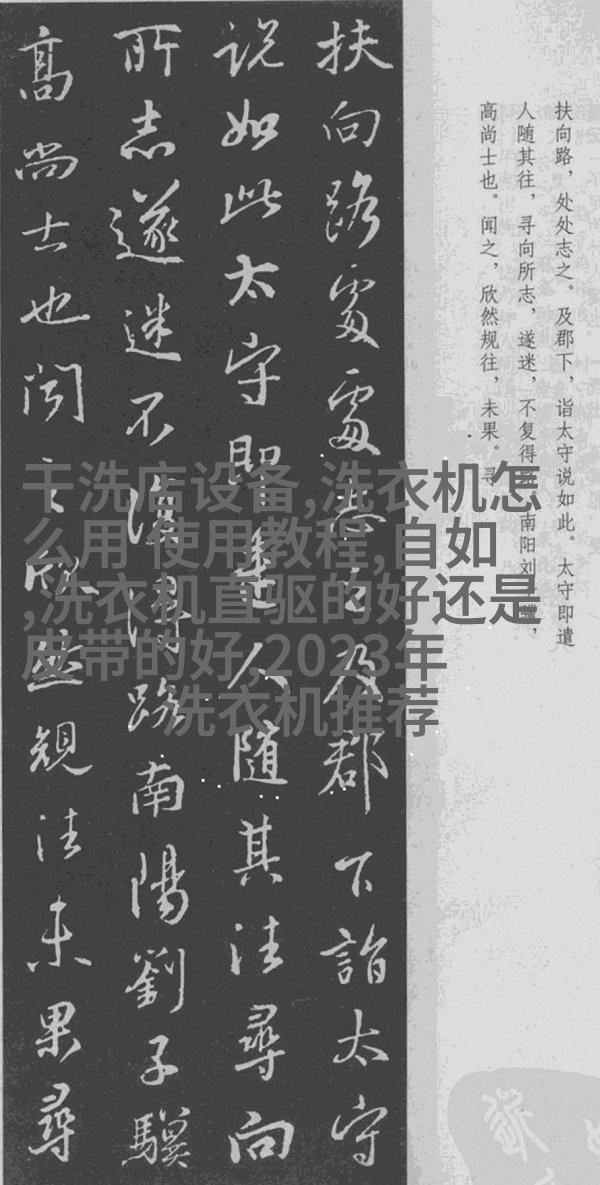 扶向路，处处志之。及郡下，诣太守说如此。太守即遣
人随其往，寻向所志，遂迷，不复得路。南阳刘子骥，
高尚士也。闻之，欣然规往，未果。寻
扶向路處處志之及郡下詣太守
説如此太守即遣人随其往尋向
所志遂迷不復得路南陽劉子驥
高尚士也聞之欣然規往未果尋
干洗店设备,洗衣机怎
么用 使用教程,自如
,洗衣机直驱的好还是
皮带的好,2023年
洗衣机推荐